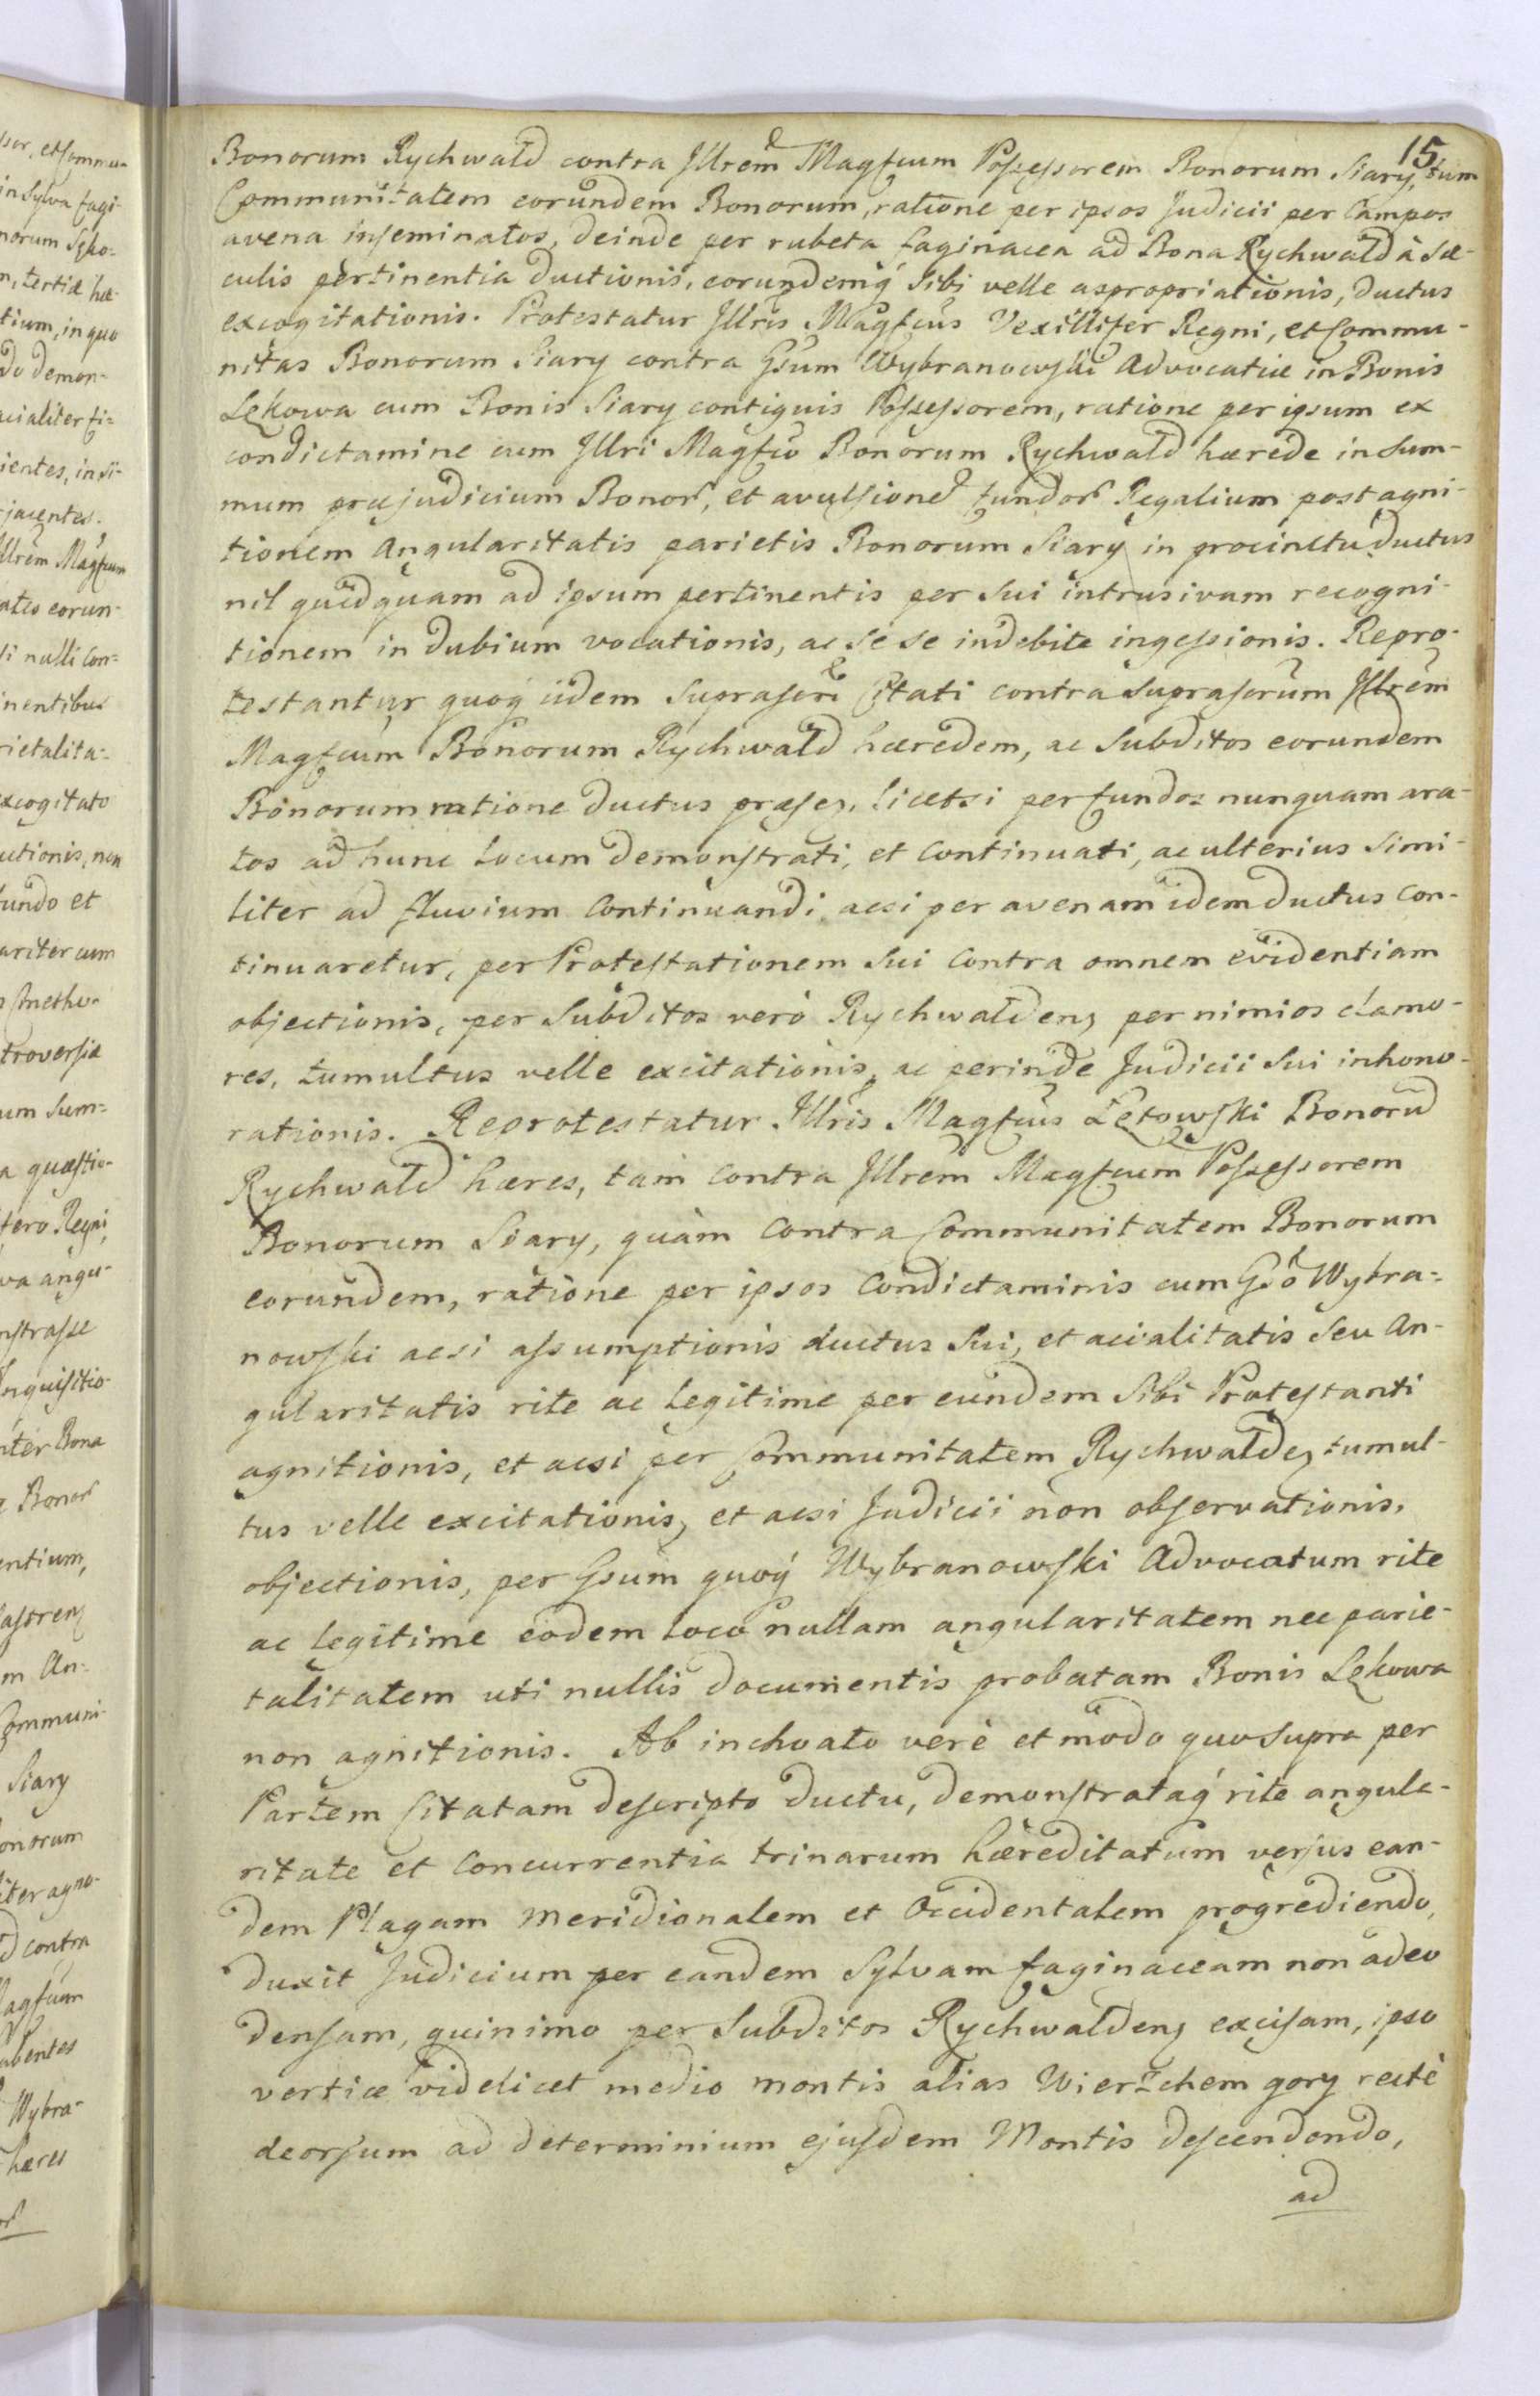 15
Bonorum Rychwald contra Jllrem Magfcum Possessorem Bonorum Siary, tum
Communitatem eorundem Bonorum, ratione per ipsos Judicii per Campos
avena inseminatos, deinde per rubeta faginacea ad Bona Rychwald à Sæ-
culis pertinentia ductionis, eorundemq́ Sibi velle appropriationis, ductus
excogitationis. Protestatur Jllris Magfcus Vexillifer Regni, et Commu-
nitas Bonorum Siary contra Gsum Wybranowski Advocatiæ in Bonis
Lękowa cum Bonis Siary contiguis Possessorem, ratione per ipsum ex
condictamine cum Jllri Magfco Bonorum Rychwald hærede in sum-
mum præjudicium Bonor, et avulsione fundor Regalium post agni-
tionem angularitatis parietis Bonorum Siary in procinctu ductus
nil quidquam ad ipsum pertinentis per Sui intrusivam recogni-
tionem in dubium vocationis, ac se se indebite ingessionis. Repro-
testantur quoq́ iidem Suprascri Citati contra Suprascrum Jllrem
Magfcum Bonorum Rychwald hæredem, ac Subditos eorundem
Bonorum ratione ductus præsez, licetsi per fundos nunquam ara-
tos ad hunc locum demonstrati, et Continuati, ac ulterius Simi-
liter ad fluvium Continuandi, acsi per avenam idem ductus con-
tinuaretur, per Protestationem Sui Contra omnem evidentiam
objectionis, per Subditos verò Rychwaldenz per nimios clamo-
res, tumultus velle excitationis, ac perinde Judicii Sui inhono-
rationis. Reprotestatur Jllris Magfcus Łętowski Bonorũ
Rychwald hæres, tam contra Jllrem Magfcum Possessorem
Bonorum Siary, quàm Contra Communitatem Bonorum
eorundem, ratione per ipsos Condictaminis cum Gso Wybra-
nowski acsi assumptionis ductus Sui, et acialitatis Seu An-
gularitatis rite ac legitime per eundem Sibi Protestanti
agnitionis, et acsi per Communitatem Rychwaldez tumul-
tus velle excitationis, et acsi Judicii non observationis,
objectionis, per Gsum quoq́ Wybranowski Advocatum rite
ac legitime eodem loco nullam angularitatem nec parie-
talitatem uti nullis documentis probatam Bonis Lękowa
non agnitionis. Ab inchoato verè et modo quo supra per
Partem Citatam descripto ductu, demonstrataq́ rite angula-
ritate et Concurrentia trinarum hæreditatum versus ean-
dem Plagam meridionalem et Occidentalem progrediendo,
duxit Judicium per eandem Sylvam faginaceam non adeo
densam, quinimo per Subditos Rychwaldenz excisam, ipso
vertice videlicet medio montis alias Wierzchem gory rectè
deorsum ad determinium ejusdem Montis descendondo,
ad